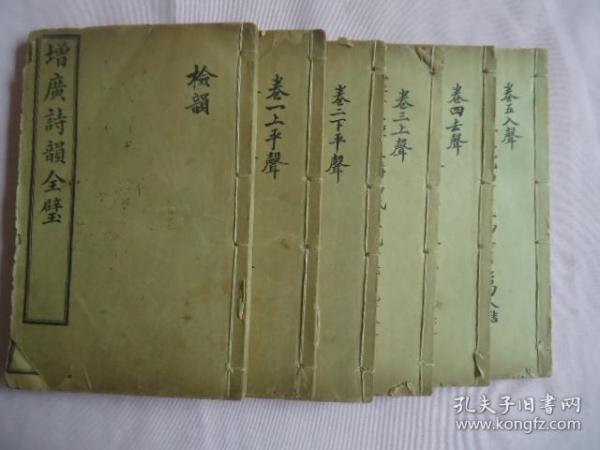 增廣詩韻全璧
檢韻
卷一上平聲
卷二下平聲
卷三上聲
卷四去聲
卷五入聲
孔夫子旧书网
www.kongfz.com